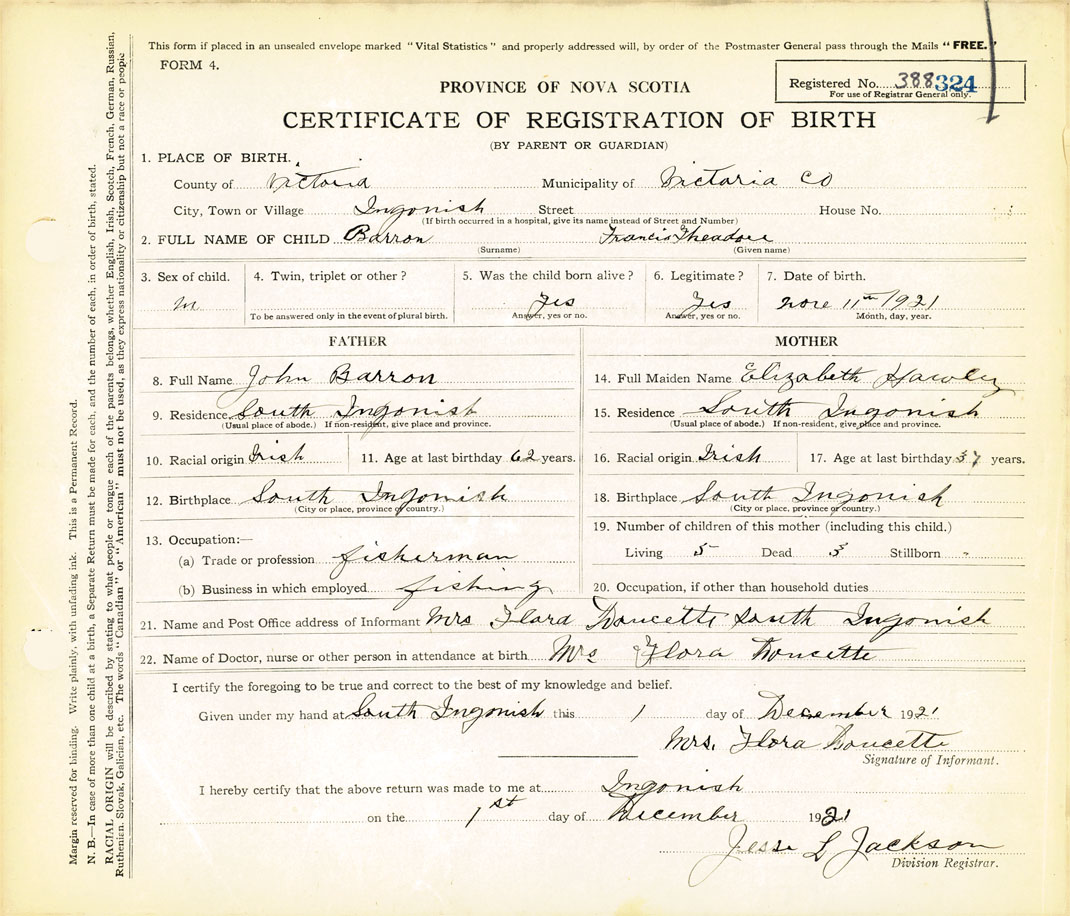 This form if placed in an unsealed envelope marked "Vital Statistics" and properly addressed will, by order of the Postmaster General pass through the Mails "FREE."
FORM 4.
Registered No. 388 324
For use of Registrar General only.
PROVINCE OF NOVA SCOTIA
CERTIFICATE OF REGISTRATION OF BIRTH
(BY PARENT OR GUARDIAN)
1. PLACE OF BIRTH.
County of Victoria Municipality of Victoria Co
City, Town or Village Ingonish Street House No.
(If birth occurred in a hospital, give its name instead of Street and Number)
2. FULL NAME OF CHILD Barron Francis Theadore
(Surname) (Given name)
3. Sex of child. 4. Twin, triplet or other? 5. Was the child born alive? 6. Legitimate? 7. Date of birth.
M Yes Yes 11th 1921
To be answered only in the event of plural birth. Answer, yes or no. Answer, yes or no. Month, day, year.
FATHER MOTHER
8. Full Name John Barron 14. Full Maiden Name Elizabeth Hawley
9. Residence South Ingonish 15. Residence South Ingonish
(Usual place of abode.) If non-resident, give place and province. (Usual place of abode.) If non-resident, give place and province.
10. Racial origin Irish 11. Age at last birthday 62 years. 16. Racial origin Irish 17. Age at last birthday 37 years.
12. Birthplace South Ingonish 18. Birthplace South Ingonish
(City or place, province or country.) (City or place, province or country.)
13. Occupation:— 19. Number of children of this mother (including this child.)
(a) Trade or profession fisherman Living 5 Dead 3 Stillborn -
(b) Business in which employed fishing 20. Occupation, if other than household duties
21. Name and Post Office address of Informant Mrs Flora Doucette South Ingonish
22. Name of Doctor, nurse or other person in attendance at birth Mrs Flora Doucette
I certify the foregoing to be true and correct to the best of my knowledge and belief.
Given under my hand at South Ingonish this 1 day of December 1921
Mrs. Flora Doucette
Signature of Informant.
I hereby certify that the above return was made to me at Ingonish
on the 1st day of December 1921
Jesse L Jackson
Division Registrar.
Margin reserved for binding. Write plainly, with unfading ink. This is a Permanent Record.
N. B.—In case of more than one child at a birth, a Separate Return must be made for each, and the number of each, in order of birth, stated.
RACIAL ORIGIN will be described by stating to what people or tongue each of the parents belongs, whether English, Irish, Scotch, French, German, Russian,
Ruthenian, Slovak, Galician, etc. The words "Canadian" or "American" must not be used, as they express nationality or citizenship but not a race or people.